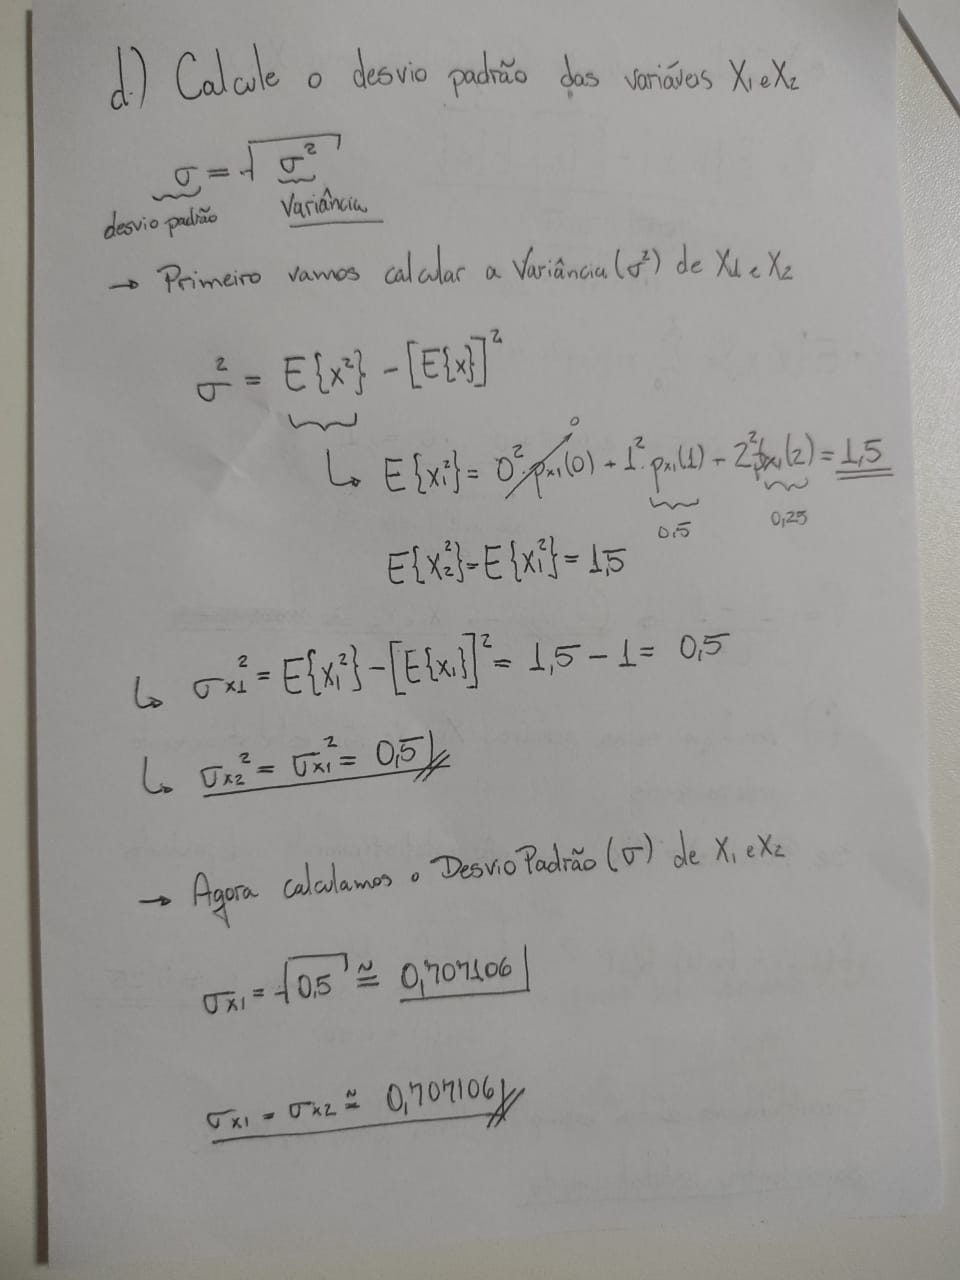 d.) Calcule o desvio padrão das variáveis X₁ e X₂
σ = √σ²
desvio padrão Variância
→ Primeiro vamos calcular a Variância (σ²) de X1 e X₂
σ² = E{x²} - [E{x}]²
↳ E{x₁²} = 0².pₓ₁(0) + 1².pₓ₁(1) + 2².pₓ₁(2) = 1,5
0
0,5 0,25
E{x₂²} = E{x₁²} = 1,5
↳ σx1² = E{x₁²} - [E{x₁}]² = 1,5 - 1 = 0,5
↳ σx2² = σx1² = 0,5
→ Agora calculamos o Desvio Padrão (σ) de X₁ e X₂
σx1 = √0,5 ≅ 0,707106
σx1 = σx2 ≅ 0,707106